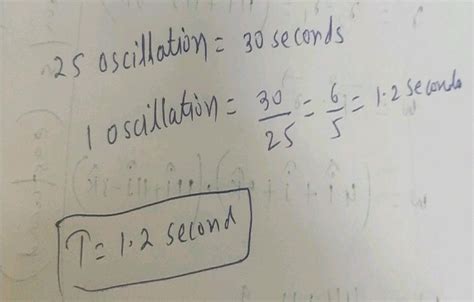 25 oscillation = 30 seconds
1 oscillation = 30/25 = 6/5 = 1.2 seconds
T = 1.2 second